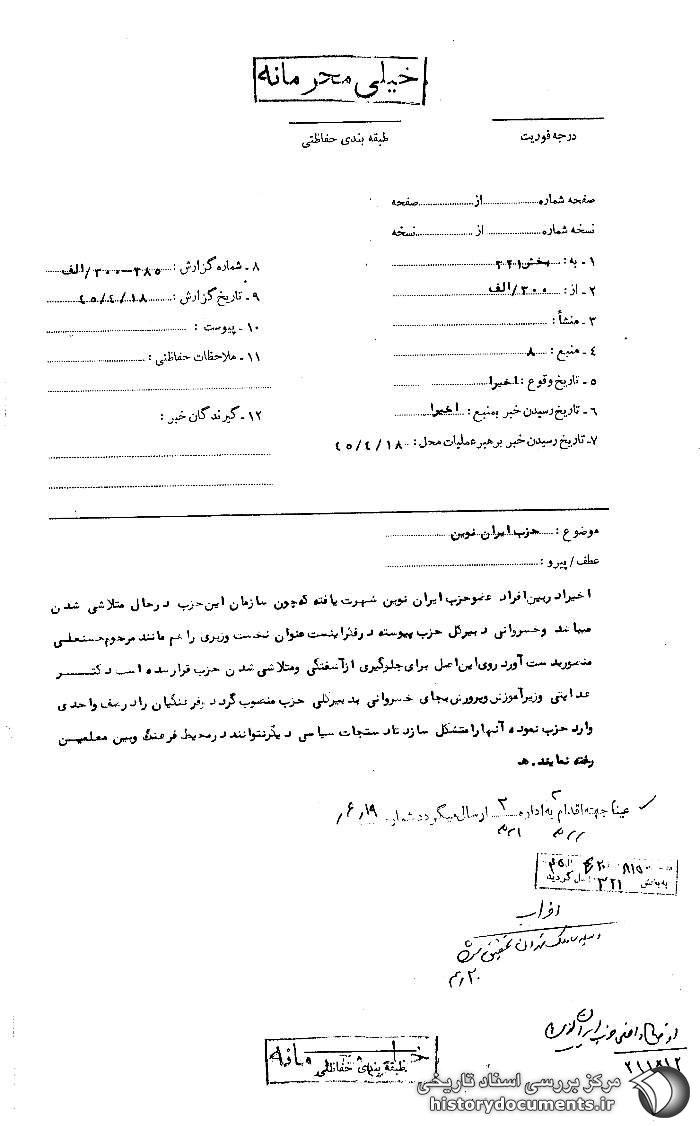 خیلی محرمانه
درجه فوریت
طبقه بندی حفاظتی
صفحه شماره از صفحه
نسخه شماره از نسخه
۱ - به : بخش ۳۲۱
۲ - از : ۳۰۰/الف
۳ - منشأ :
۴ - منبع : ۸
۵ - تاریخ وقوع : اخیرا
۶ - تاریخ رسیدن خبر بمنبع : اخیرا
۷ - تاریخ رسیدن خبر برهبر عملیات محل : ۴۵/۴/۱۸
۸ - شماره گزارش : ۳۸۵-۳۰۰/الف
۹ - تاریخ گزارش : ۴۵/۴/۱۸
۱۰ - پیوست :
۱۱ - ملاحظات حفاظتی :
۱۲ - گیرندگان خبر :
موضوع : حزب ایران نوین
عطف/پیرو :
اخیرا دربین افراد عضو حزب ایران نوین شهرت یافته که چون سازمان این حزب درحال متلاشی شدن
میباشد وخسروانی دبیرکل حزب پیوسته درفکر اینست عنوان نخست وزیری را هم مانند مرحوم حسنعلی
منصور بدست آورد روی این اصل برای جلوگیری ازآشفتگی ومتلاشی شدن حزب قرار شده است دکتر
هدایتی وزیرآموزش وپرورش بجای خسروانی به دبیرکلی حزب منصوب گردد وفرهنگیان را در صف واحدی
وارد حزب نموده آنها را متشکل سازد تا دستجات سیاسی دیگر نتوانند درمحیط فرهنگ وبین معلمین
رخنه نمایند . هـ
عینا جهت اقدام به اداره ۳ ارسال میگردد شماره
به بخش ۳۲۱ گردید
طبقه بندی حفاظتی
مرکز بررسی اسناد تاریخی
historydocuments.ir